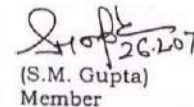 26.207
(S.M. Gupta)
Member